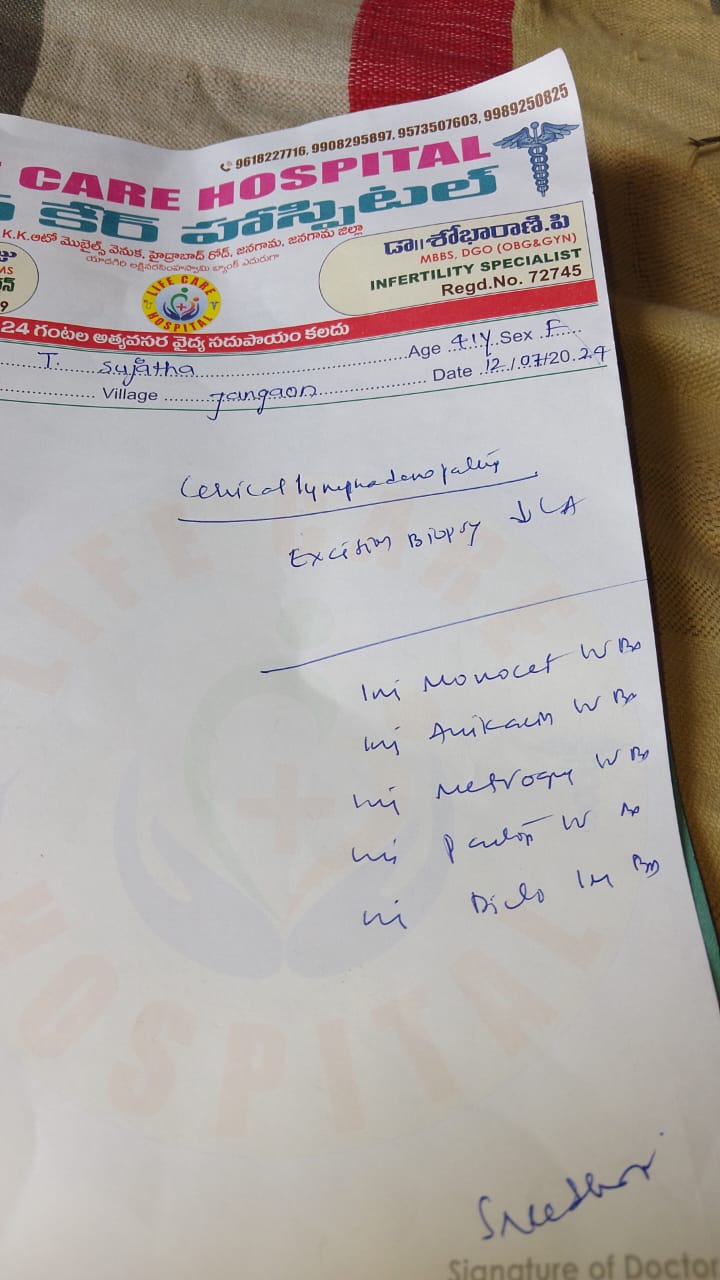 9618227716, 9908295897, 9573507603, 9989250825
CARE HOSPITAL
కేర్ హాస్పిటల్
K.K.ఆటో మొబైల్స్ వెనుక, హైద్రాబాద్ రోడ్, జనగామ, జనగామ జిల్లా
యాదగిరి లక్ష్మీనరసింహస్వామి బ్యాంక్ ఎదురుగా
డా॥శోభారాణి.పి
MBBS, DGO (OBG&GYN)
INFERTILITY SPECIALIST
Regd.No. 72745
LIFE CARE
HOSPITAL
24 గంటల అత్యవసర వైద్య సదుపాయం కలదు
T. Sujatha Age 41Y Sex F
Village Jangaon Date 12/07/2024
Cervical lymphadenopathy
Excision Biopsy ↓ LA
Inj Monocef IV BD
Inj Amikacin IV BD
Inj Metrogyl IV
Inj IV
Inj Diclo IM BD
LIFE CARE
HOSPITAL
Signature of Doctor